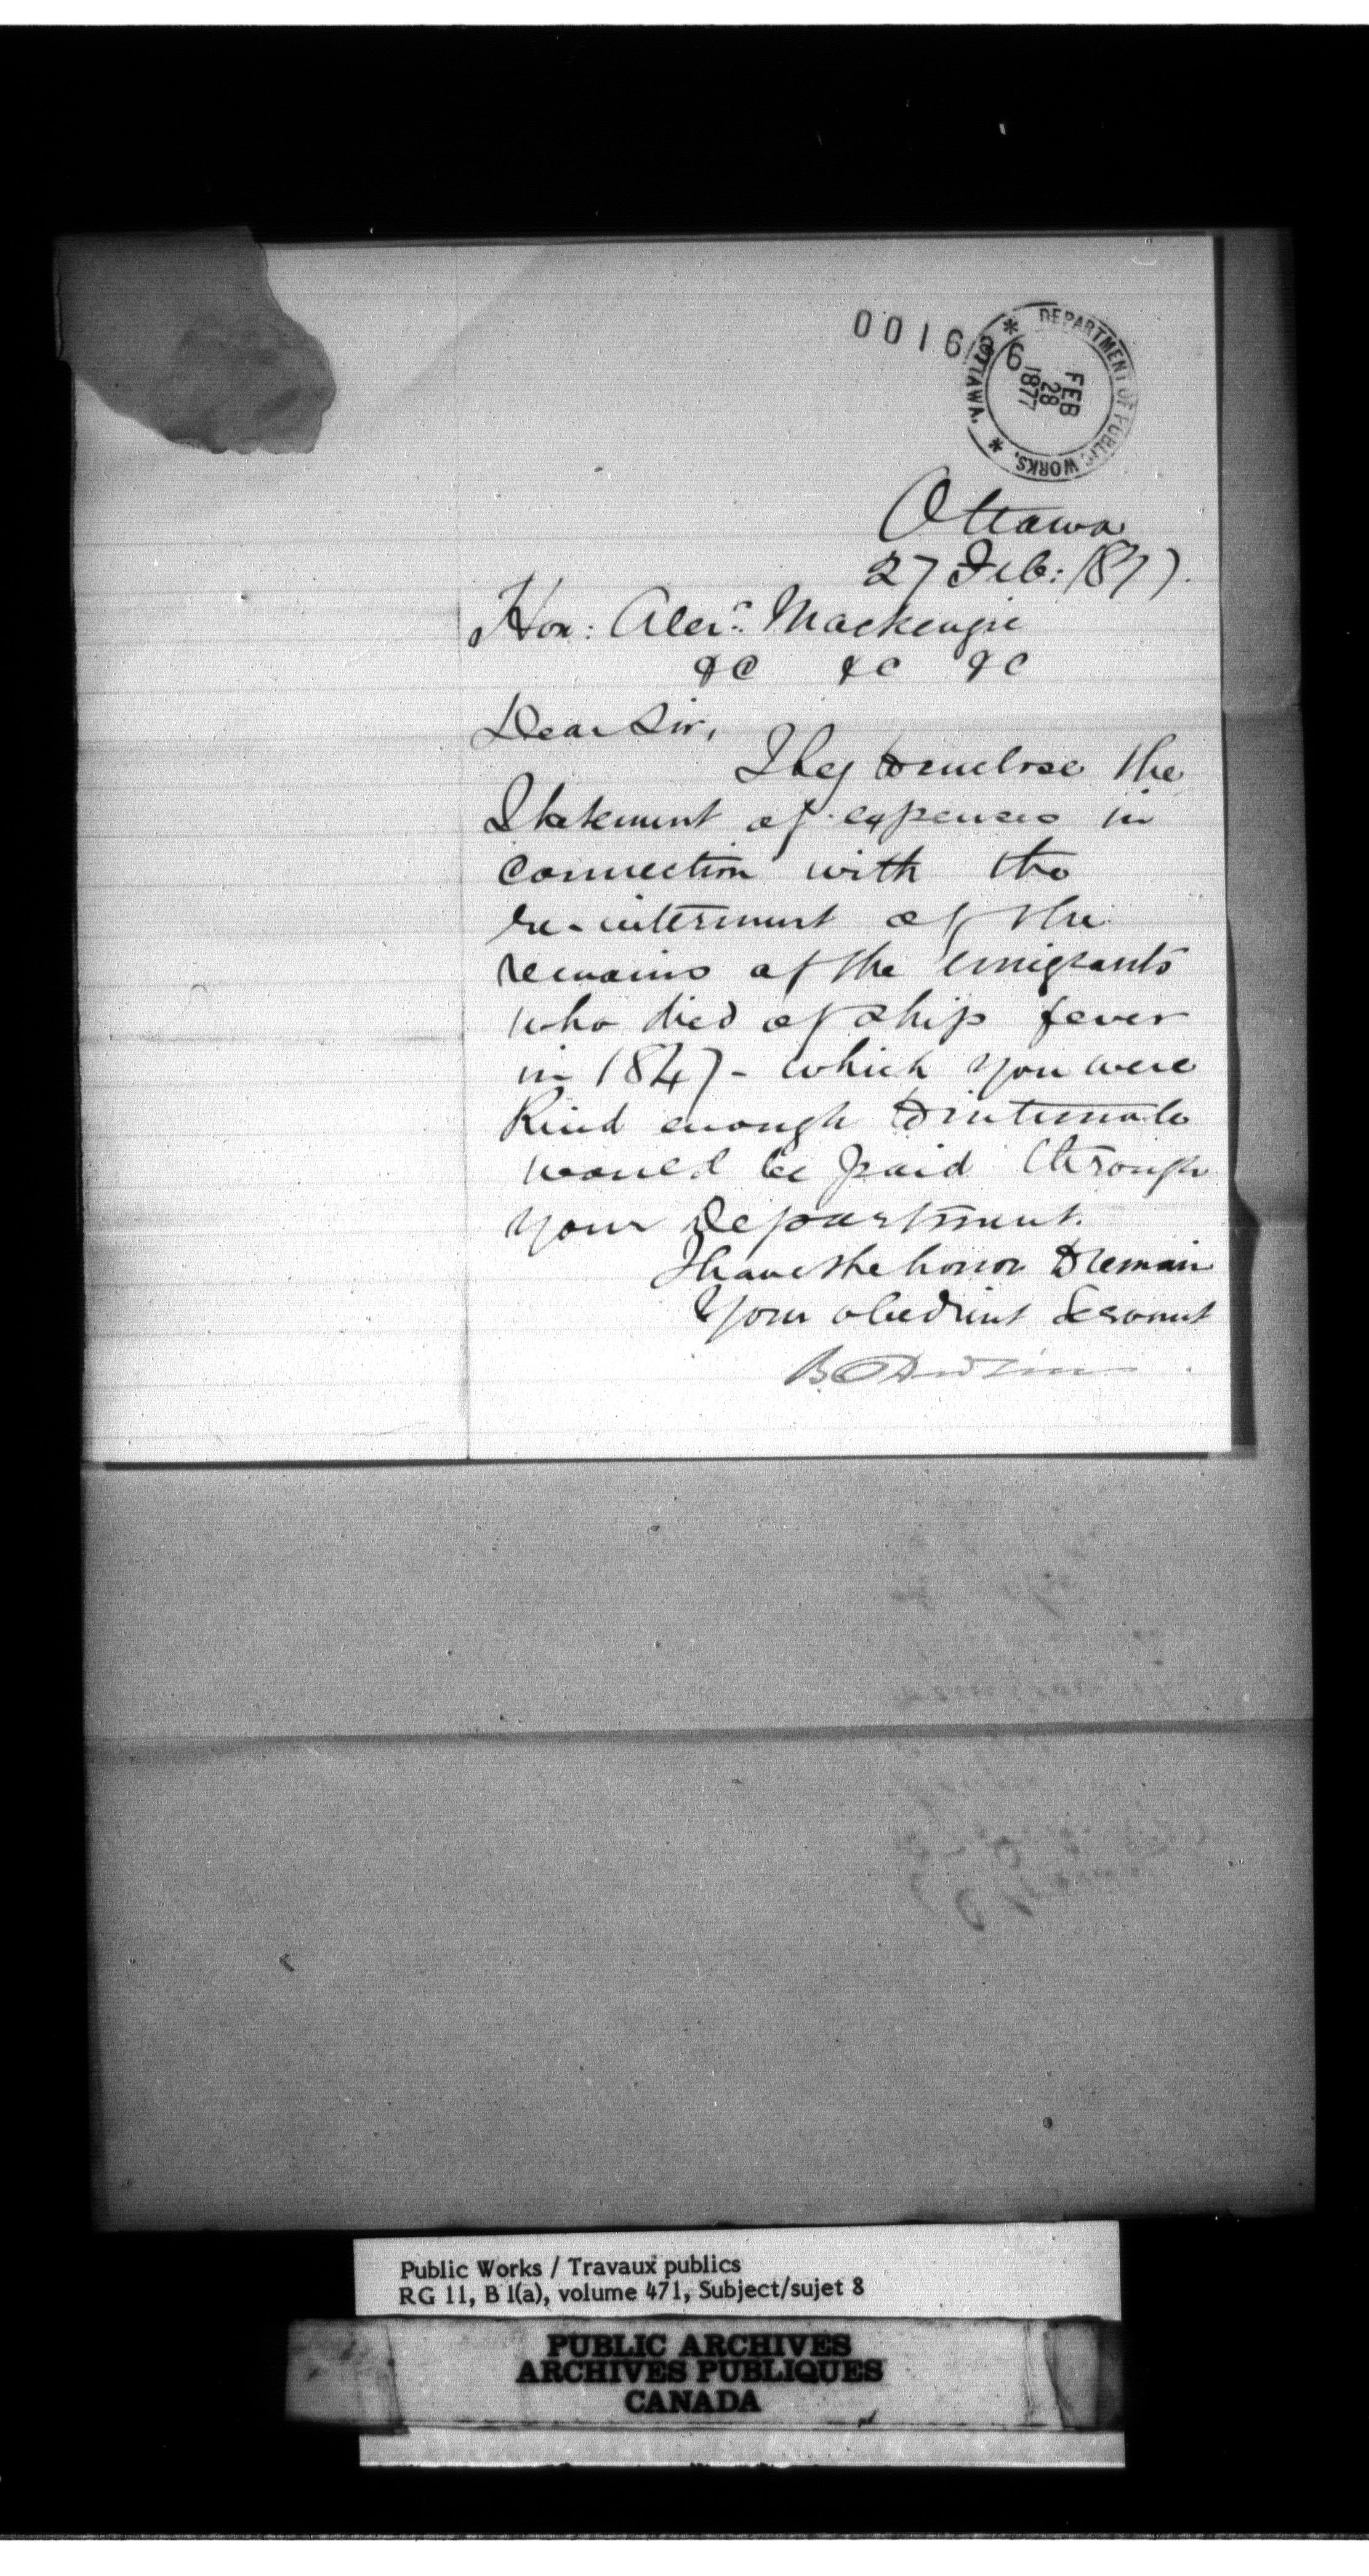 DEPARTMENT OF PUBLIC WORKS. * OTTAWA. *
FEB
28
1877
Ottawa
27 Feb: 1877.
Hon: Alexr. Mackenzie
&c &c &c
Dear Sir,
I beg to enclose the
Statement of expenses in
connection with the
re-interment of the
remains of the emigrants
who died of ship fever
in 1847 - which you were
kind enough to intimate
would be paid through
your Department.
I have the honor to remain
Your obedient Servant
Public Works / Travaux publics
RG 11, B 1(a), volume 471, Subject/sujet 8
PUBLIC ARCHIVES
ARCHIVES PUBLIQUES
CANADA